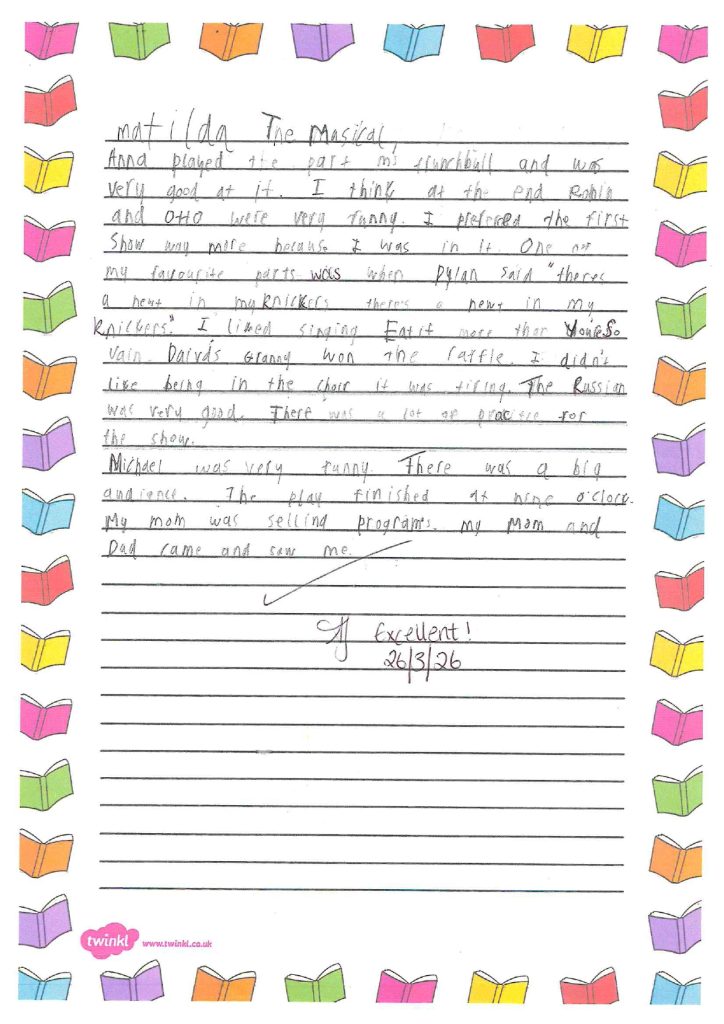 matilda The Masical,
Anna played the part ms trunchbull and was
very good at it. I think at the end Robin
and Otto were very funny. I preferred the first
Show way more because I was in it. One of
my favourite parts was when Dylan said "theres
a newt in my knickers there's a newt in my
knickers." I liked singing Eat it more than You're So
Vain. Daivd's Granny won the raffle. I didn't
like being in the choir it was tiring. The Russian
was very good. There was a lot of practise for
the show.
Michael was very funny. There was a big
audience. The play finished at nine o'clock.
My mom was selling programs. my Mom and
Dad came and saw me.
Excellent!
26/3/26
twinkl www.twinkl.co.uk